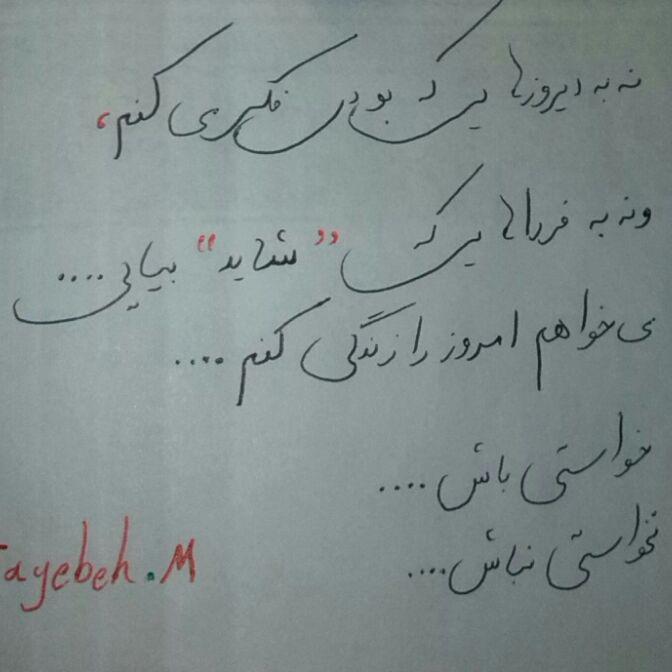 نه به دیروزهایی که بودی فکر می کنم،
ونه به فرداهایی که "شاید" بیایی....
می خواهم امروز را زندگی کنم ....
خواستی باش ....
نخواستی نباش ....
Tayebeh.M